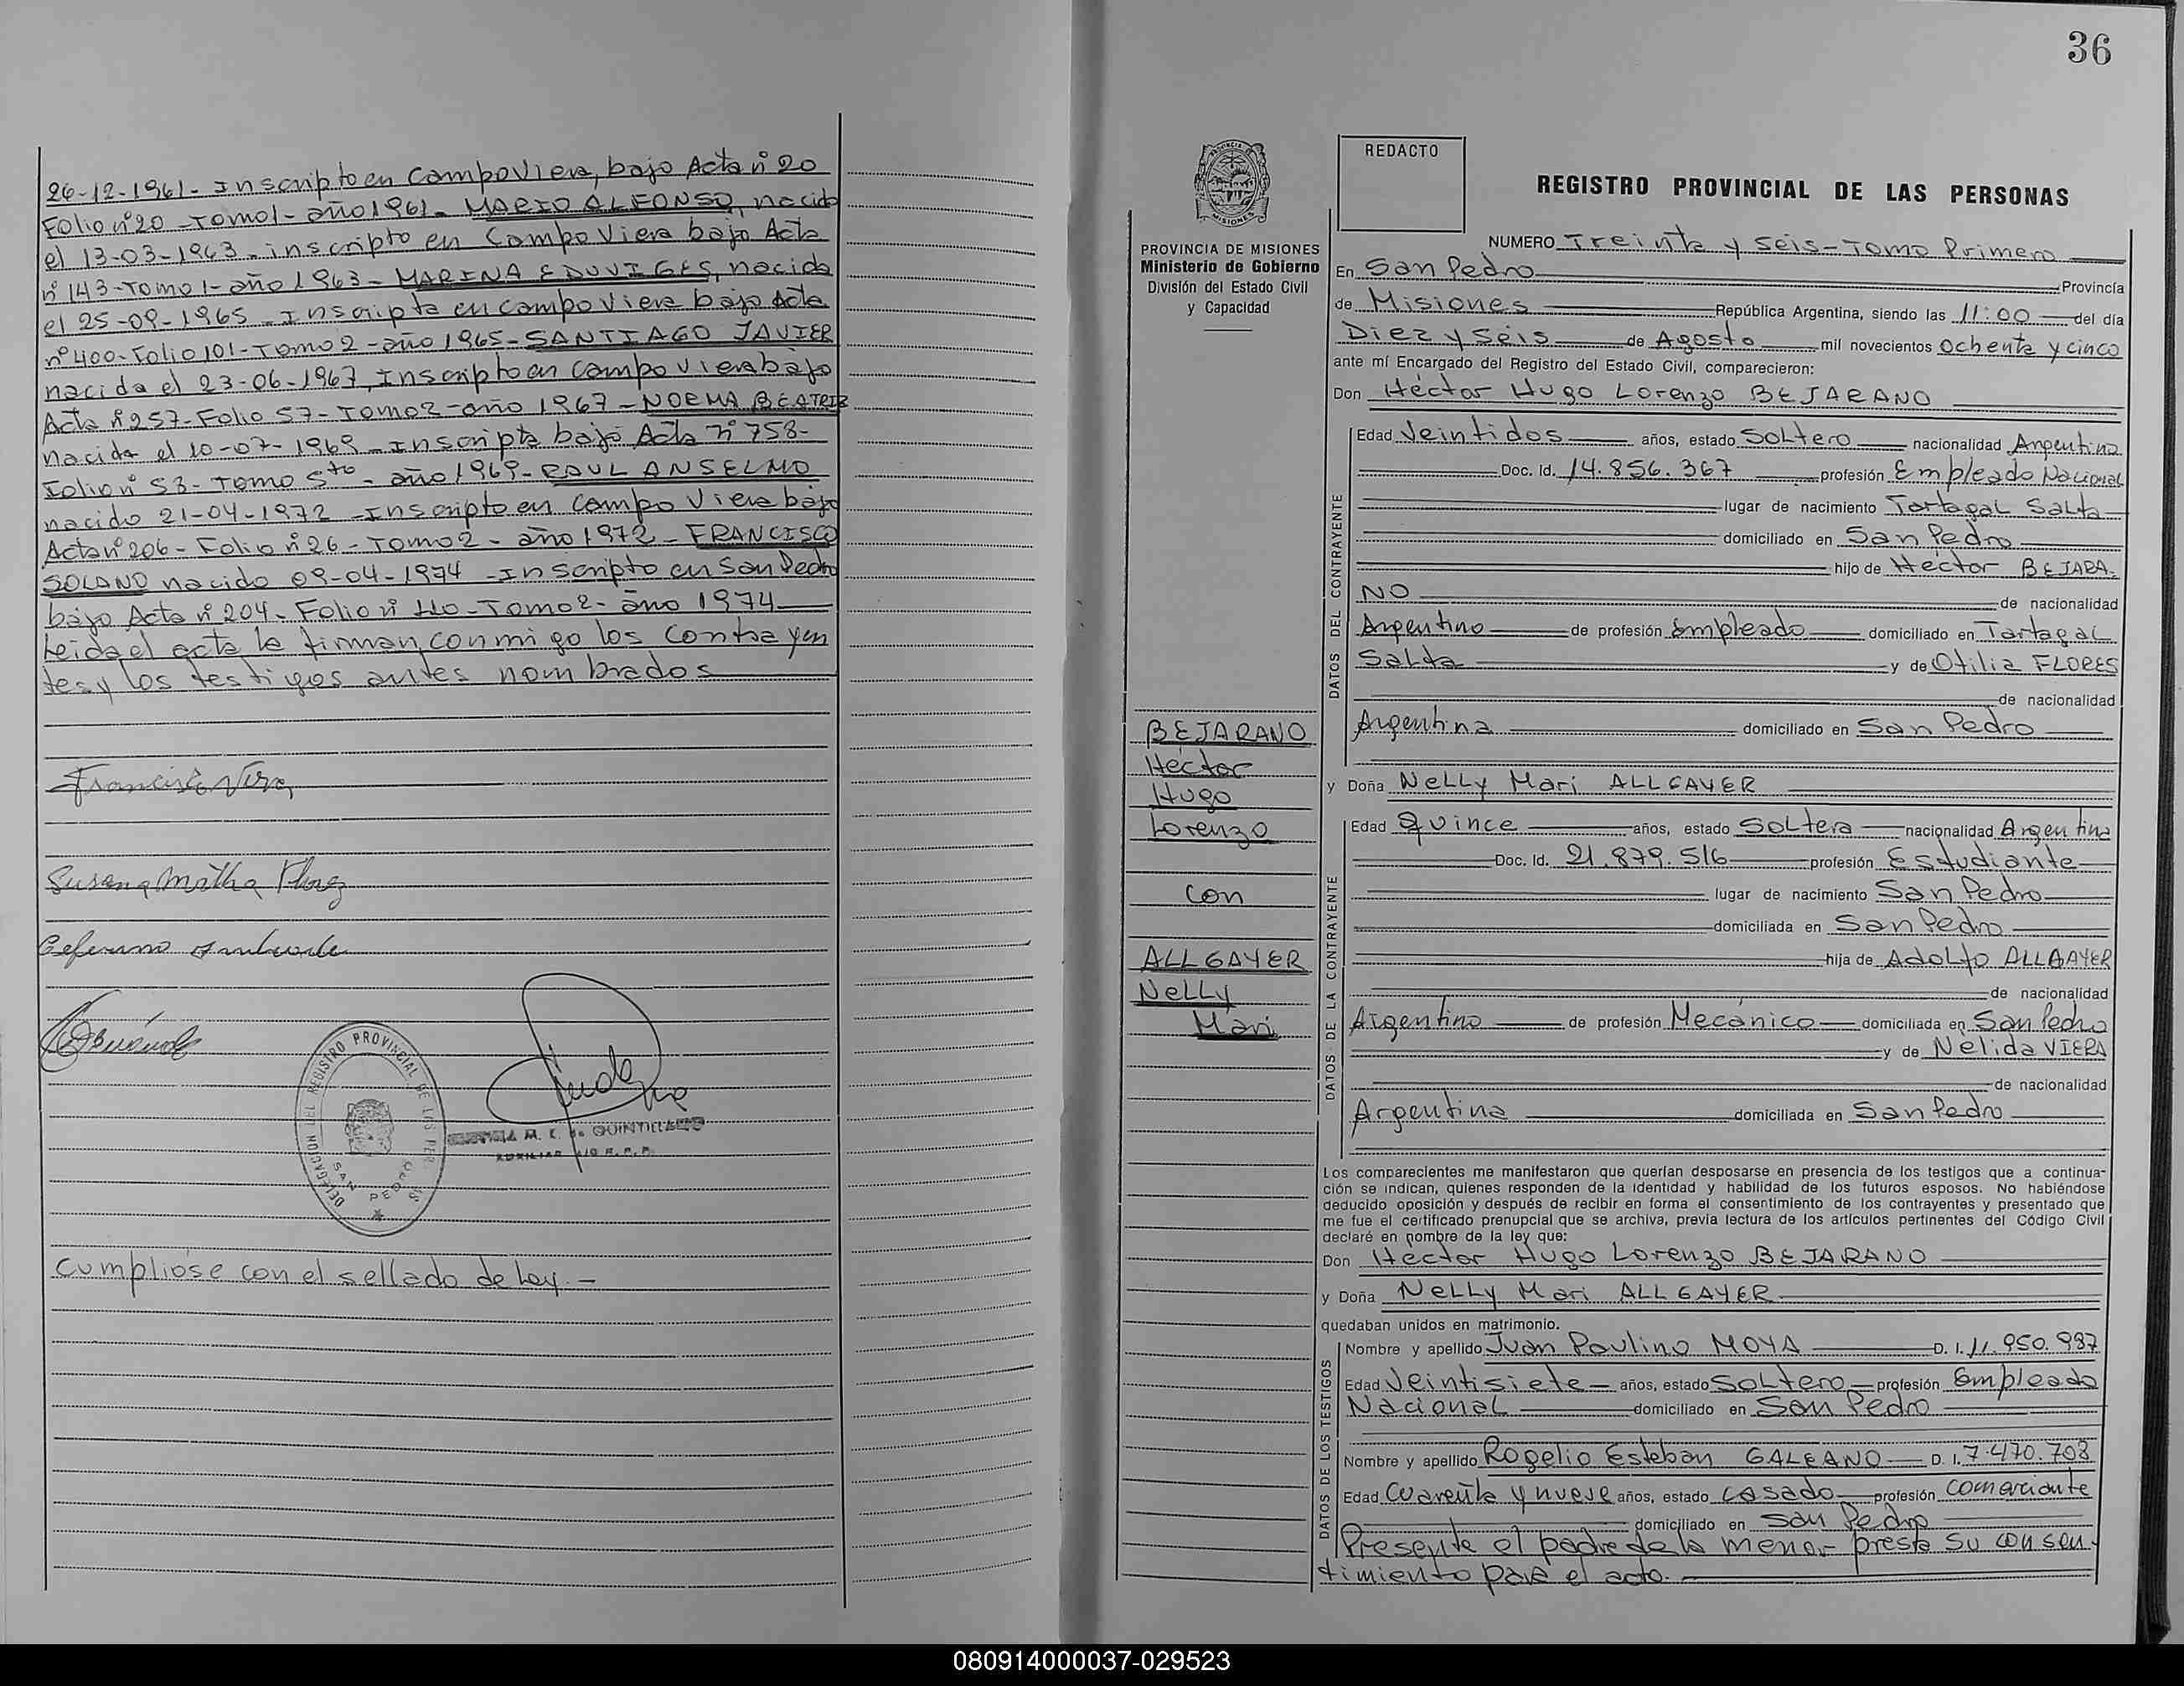 26-12-1961- Inscripto en Campo Viera, bajo Acta nº 20
Folio nº 20 - Tomo 1- año 1961- MARIO ALFONSO, nacido
el 13-03-1963- inscripto en Campo Viera bajo Acta
nº 143-Tomo 1-año 1963- MARINA EDUVIGES, nacida
el 25-09-1965 - Inscripta en Campo Viera bajo Acta
nº 400-Folio 101-Tomo 2-año 1965- SANTIAGO JAVIER
nacida el 23-06-1967, Inscripto en Campo Viera bajo
Acta nº 257-Folio 57-Tomo 2-año 1967-NORMA BEATRIZ
nacida el 10-07-1969 - Inscripta bajo Acta nº 758-
Folio nº 53- Tomo 5to - año 1969- RAUL ANSELMO
nacido 21-04-1972 - Inscripto en Campo Viera bajo
Acta nº 206 - Folio nº 26 - Tomo 2 - año 1972 - FRANCISCO
SOLANO nacido 09-04-1974 - Inscripto en San Pedro
bajo Acta nº 204- Folio nº 110-Tomo 2- año 1974
Leida el acta la firman conmigo los Contrayen
tes y los testigos antes nombrados
Francisco Vera
Susana Martha
DELEGACION DEL REGISTRO PROVINCIAL DE LAS PER
SAN PEDRO
M. E. de QUINTILLANO
AUXILIAR A/C R. P. P.
Cumplióse con el sellado de Ley.-
36
PROVINCIA DE MISIONES
Ministerio de Gobierno
División del Estado Civil
y Capacidad
BEJARANO
Héctor
Hugo
Lorenzo
con
ALLGAYER
Nelly
Mari
REDACTO
REGISTRO PROVINCIAL DE LAS PERSONAS
NUMERO Treinta y Seis-Tomo Primero
En San Pedro Provincia
de Misiones República Argentina, siendo las 11:00 del día
Diez y Seis de Agosto mil novecientos Ochenta y cinco
ante mí Encargado del Registro del Estado Civil, comparecieron:
Don Héctor Hugo Lorenzo BEJARANO
DATOS DEL CONTRAYENTE
Edad Veintidos años, estado Soltero nacionalidad Argentina
Doc. Id. 14.856.367 profesión Empleado Nacional
lugar de nacimiento Tartagal Salta
domiciliado en San Pedro
hijo de Héctor BEJARA-
NO de nacionalidad
Argentino de profesión Empleado domiciliado en Tartagal
Salta y de Otilia FLORES
de nacionalidad
Argentina domiciliado en San Pedro
y Doña Nelly Mari ALLGAYER
DATOS DE LA CONTRAYENTE
Edad Quince años, estado Soltera nacionalidad Argentina
Doc. Id. 21.879.516 profesión Estudiante
lugar de nacimiento San Pedro
domiciliada en San Pedro
hija de Adolfo ALLGAYER
de nacionalidad
Argentino de profesión Mecánico domiciliada en San Pedro
y de Nelida VIERA
de nacionalidad
Argentina domiciliada en San Pedro
Los comparecientes me manifestaron que querían desposarse en presencia de los testigos que a continua-
ción se indican, quienes responden de la identidad y habilidad de los futuros esposos. No habiéndose
deducido oposición y después de recibir en forma el consentimiento de los contrayentes y presentado que
me fue el certificado prenupcial que se archiva, previa lectura de los artículos pertinentes del Código Civil
declaré en nombre de la ley que:
Don Héctor Hugo Lorenzo BEJARANO
y Doña Nelly Mari ALLGAYER
quedaban unidos en matrimonio.
DATOS DE LOS TESTIGOS
Nombre y apellido Juan Paulino MOYA D. I. 11.950.987
Edad Veintisiete años, estado Soltero profesión Empleado
Nacional domiciliado en San Pedro
Nombre y apellido Rogelio Esteban GALEANO D. I. 7.470.708
Edad Cuarenta y nueve años, estado casado profesión Comerciante
domiciliado en San Pedro
Presente el padre de la menor presta su consen-
timiento para el acto.-
080914000037-029523